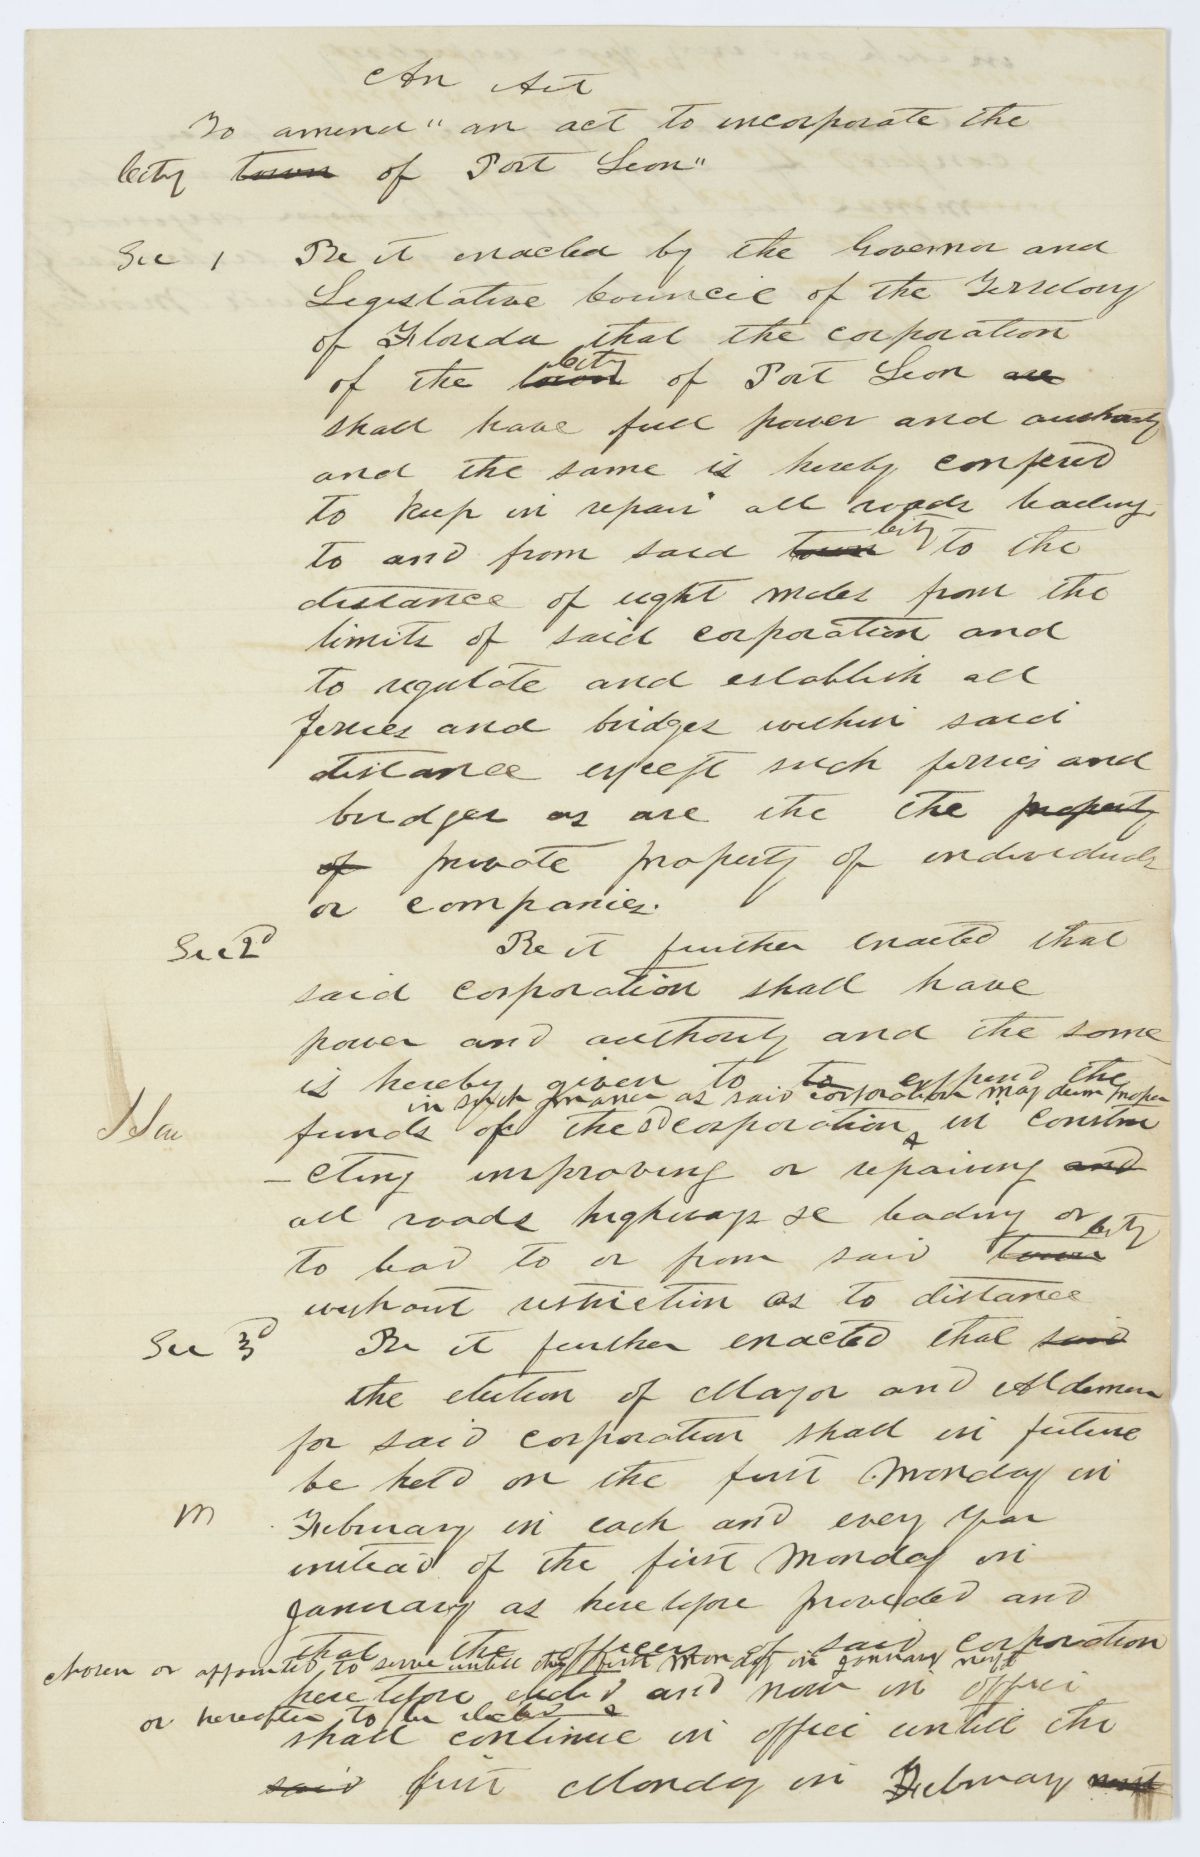 An Act
To amend "an act to incorporate the
City town of Port Leon"
Sec 1 Be it enacted by the Governor and
Legislative Council of the Territory
of Florida that the corporation
city
of the town of Port Leon are
shall have full power and authority
and the same is hereby confered
to keep in repair all roads leading
city
to and from said town to the
distance of eight miles from the
limits of said corporation and
to regulate and establish all
ferries and bridges within said
distance except such ferries and
bridges as are the the property
of private property of individuals
or companies.
Sec 2d Be it further enacted that
said corporation shall have
power and authority and the same
is hereby given to to expend the
in such manner as said corporation may deem proper
funds of the sd corporation in constru
-cting improving or repairing and
all roads highways &c leading or
city
to lead to or from said town
without restriction as to distance
Sec 3d Be it further enacted that said
the election of Mayor and Aldermen
for said corporation shall in future
be held on the first Monday in
February in each and every year
instead of the first Monday in
January as heretofore provided and
that the officers of said corporation
chosen or appointed to serve untill the first Monday in January next
heretofore elected and now in office
or hereafter to be elected
shall continue in office untill the
said first Monday in February next